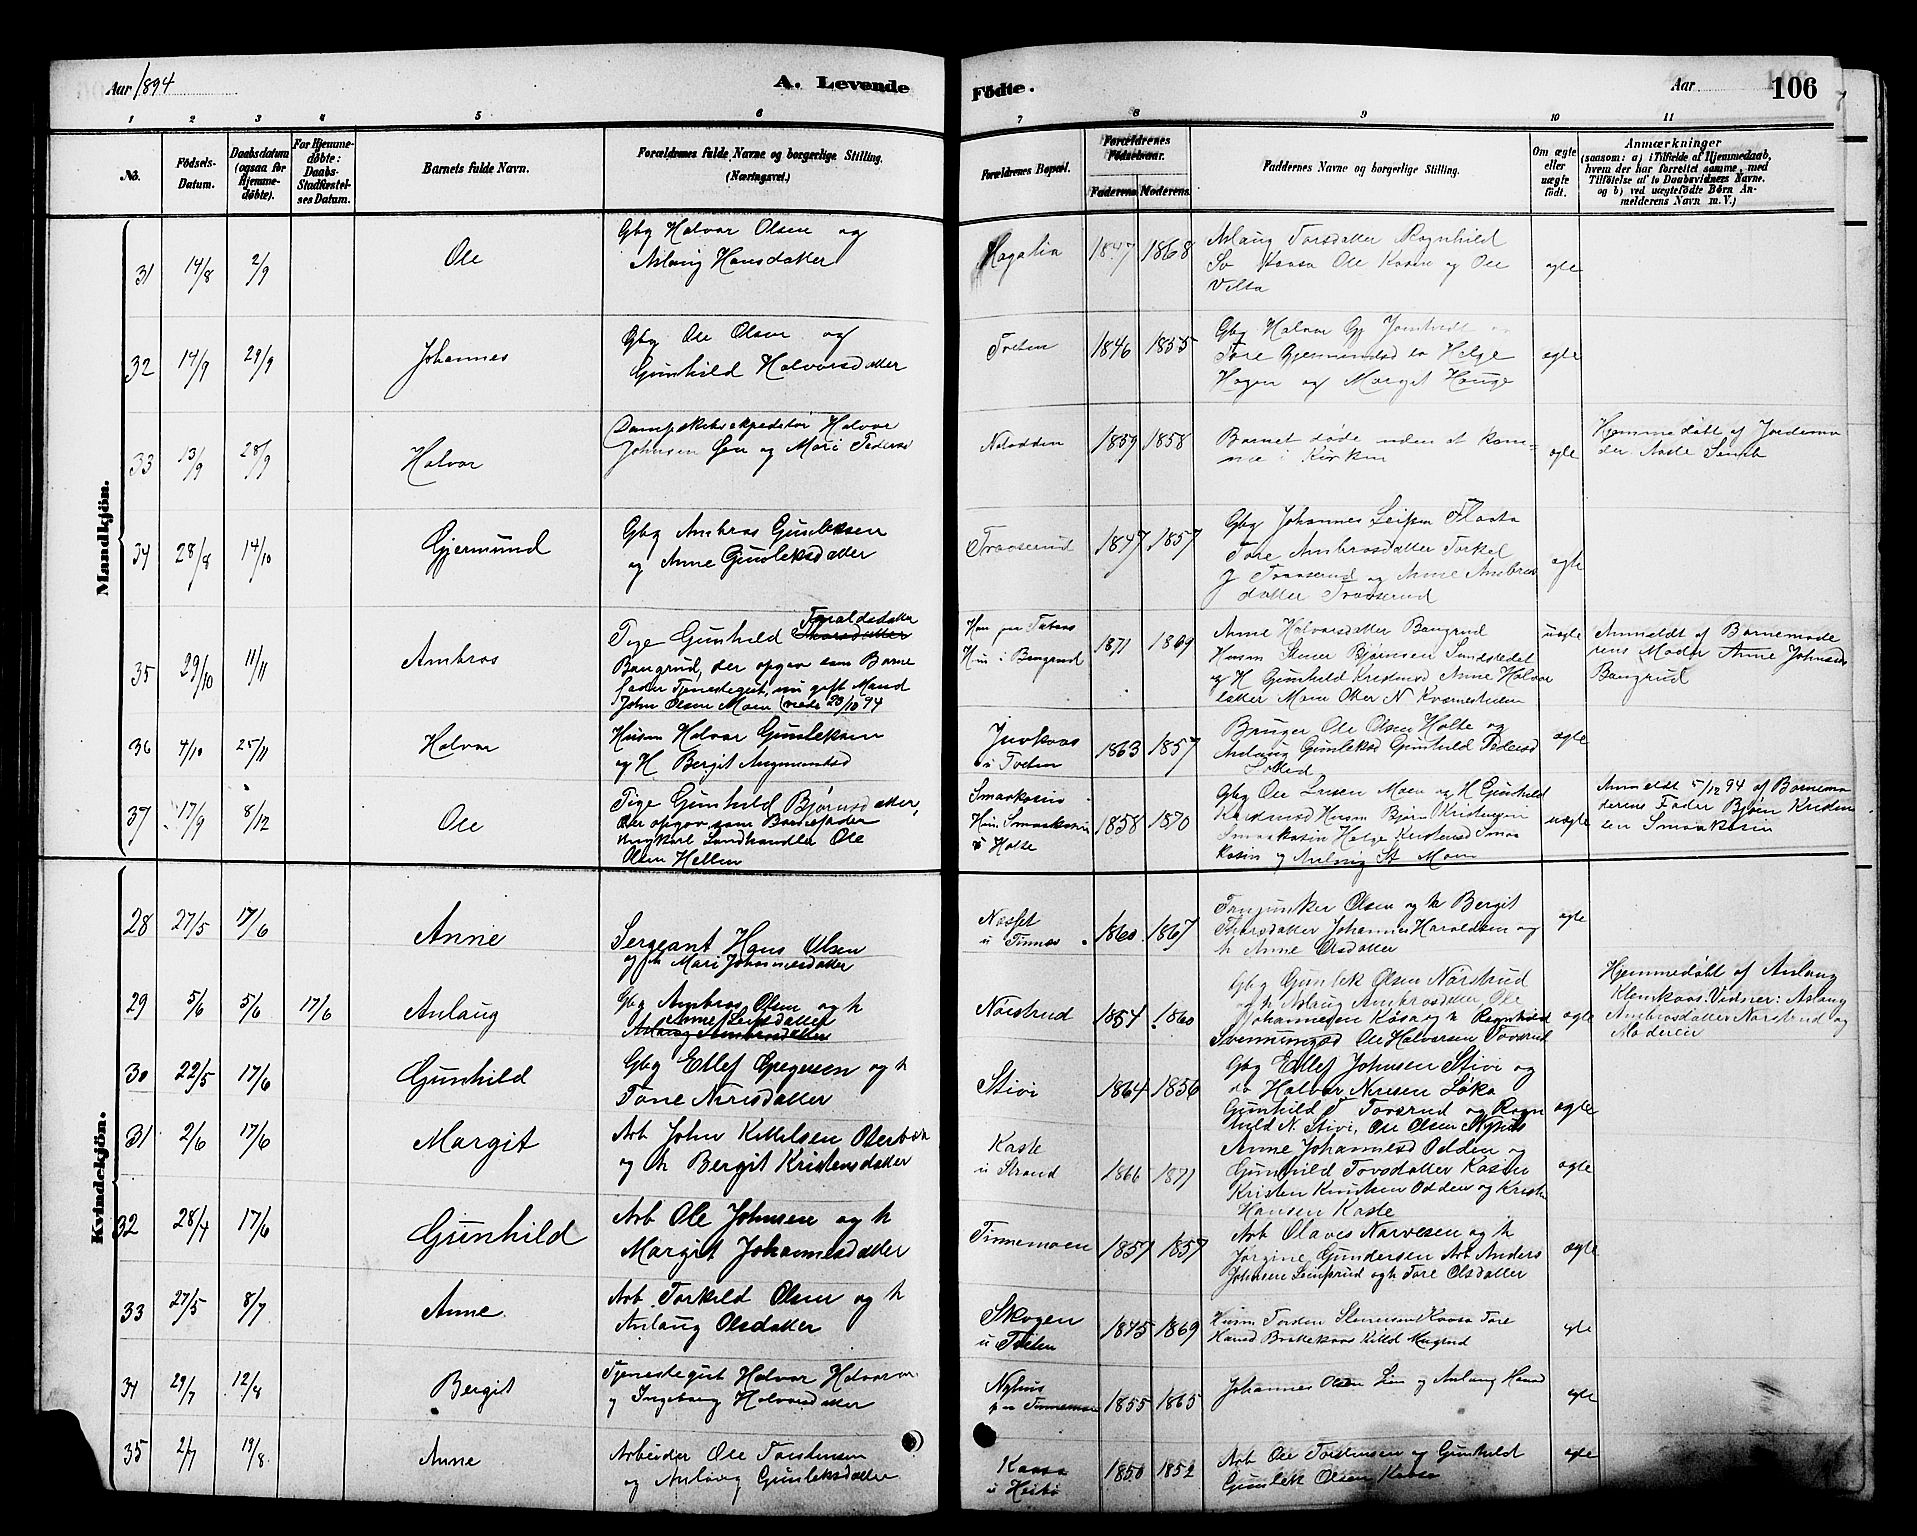 Aar 1894
A. Levende
Fødte.
Aar
106
1 2 3 4 5 6 7 8 9 10 11
No.
Fødsels-
Datum.
Daabsdatum
(ogsaa for
Hjemme-
døbte).
For Hjemme-
døbte:
Daabs-
Stadfæstel-
ses Datum.
Barnets fulde Navn.
Forældrenes fulde Navne og borgerlige Stilling.
(Næringsvei.)
Forældrenes Bopæl.
Forældrenes
Fødselsaar.
Faderens Moderens
Faddernes Navne og borgerlige Stilling.
Om ægte
eller
uægte
født.
Anmærkninger
(saasom: a) i Tilfælde af Hjemmedaab,
hvem der har forrettet samme, med
Tilføielse af to Daabsvidners Navne.
og b) ved uægtefødte Børn An-
melderens Navn m. V.)
Mandkjön.
31 14/8 2/9
Ole
Gbg Halvor Olsen og
Aslaug Hansdatter
Hagalia
1847 1868
Aslaug Torsdatter Ragnhild
Kaasa Ole Kasin og Ole
Velta
ægte
32 14/9 29/9
Johannes
Gbg Ole Olsen og
Gunhild Halvorsdatter
Tveten
1846 1855
Gbg Halvor Gj Jomtvedt
Tore Gjermundsd Helge
Hagen og Margit Hauge
ægte
33 13/9 28/9
Halvor
Dampskibsexpeditør Halvor
Johnsen og Mari Peders
Notodden
1859 1858
Barnet døde uden at kom=
me i Kirken
ægte
Hjemmedøbt af Jordemo
der Aase Semb
34 28/8 14/10
Gjermund
Gbg Ambros Gunleksen
og Anne Gunleksdatter
Traaserud
1847 1857
Gbg Johannes Leifsen Flaata
Tore Ambrosdatter Torkel
G Traaserud og Anne Ambros
datter Traaserud
ægte
35 29/10 11/11
Ambros
Pige Gunhild Toraldsdatter
Bangrud, der opgav som Barne
fader Tjenestegut, nu gift Mand
John Olsen Moen viede 23/10 94
Hun i Bangrud
1871 1869
Anne Halvorsdatter Bangrud
Husm Stener Bjørnsen Sundstedet
og H Gunhild Kristensd Anne Halvor
datter Moen Otter N Kværnstuen
uægte
Anmeldt af Barnemode
rens Moder Anne Johnsd
Bangrud
36 4/10 25/11
Halvor
Husm Halvor Gunleksen
og H Bergit Angmundsd
Juvkaas
u Tveten
1863 1857
Bruger Ole Olsen Holte og
Anlaug Gunleksd Gunhild Pedersd
ægte
37 17/9 8/12
Ole
Pige Gunhild Bjørnsdatter,
der opgav som Barnefader
ungkarl Landhandler Ole
Olsen Hellen
Smaakasin
Hun Smaakasin
u Holte
1858 1870
Gbg Ole Larsen Moen og H Gunhild
Karstensd Husm Bjørn Kristensen
Smaakasin Helge Kristensd Smaa
kasin og Anlaug St Moen
uægte
Anmeldt 5/12 94 af Barnemo
derens Fader Bjørn Kristen
sen Smaakasin
Kvindekjön.
28 27/5 17/6
Anne
Sergeant Hans Olsen
og h Mari Johannesdatter
Næsset
u Tinnes
1860 1867
Fanejunker Olsen og h Bergit
Thorsdatter Johannes Haraldsen og
h Anne Olsdatter
ægte
29 5/6 5/6 17/6
Anlaug
Gbg Ambros Olsen og h
Anne Leifsdatter
Aslaug Ambrosdatter
Nørstrud
1854 1860
Gbg Gunlek Olsen Nørstrud
og h Aslaug Ambrosdatter Ole
Johannesen Kåsa og h Ragnhild
Svenningsd Ole Halvorsen Tovsrud
ægte
Hjemmedøbt af Anlaug
Klemkaas. Vidner: Aslaug
Ambrosdatter Nørstrud og
Moderen
30 22/5 17/6
Gunhild
Gbg Ellef Gregersen og h
Tone Nirisdatter
Stivi
1864 1856
Gbg Ellef Johnsen Stivi og
do Halvor Nirisen Løka
Gunhild T Tovsrud og Ragn
hild N. Stivi, Ole Olsen
ægte
31 2/6 17/6
Margit
Arb John Kittelsen Oterbæk
og h Bergit Kristensdatter
Kaste
u Strand
1866 1871
Anne Johannesd Odden og
Gunhild Tovsdatter Kasin
Kristen Knutsen Odden og Kristen
Hansen Kaste
ægte
32 28/4 17/6
Gunhild
Arb Ole Johnsen og h
Margit Johannesdatter
Tinnemoen
1851 1857
Arb Olaves Narvesen og h
Jørgine Gundersen Arb Anders
Johnsen Lemsrud og h Tore Olsdatter
ægte
33 27/5 8/7
Anne
Arb Torkild Olsen og h
Anlaug Olsdatter
Skogen
u Tveten
1845 1869
Husm Torden Stenersen Kaasa Tore
Hansd Brattekaas Kild Mugrud
ægte
34 29/7 12/8
Bergit
Tjenestegut Halvor Halvorsen
og Ingeborg Halvorsdatter
Nyhus
paa Tinnemoen
1855 1865
Johannes Olsen Lien og Anlaug Hansd
ægte
35 2/7 19/8
Anne
Arbeider Ole Torstensen
og Anlaug Gunleksdatter
Kaasa
u Heibø
1850 1852
Arb Ole Torstensen og Gunhild
Gunlek Olsen Kaasa
ægte